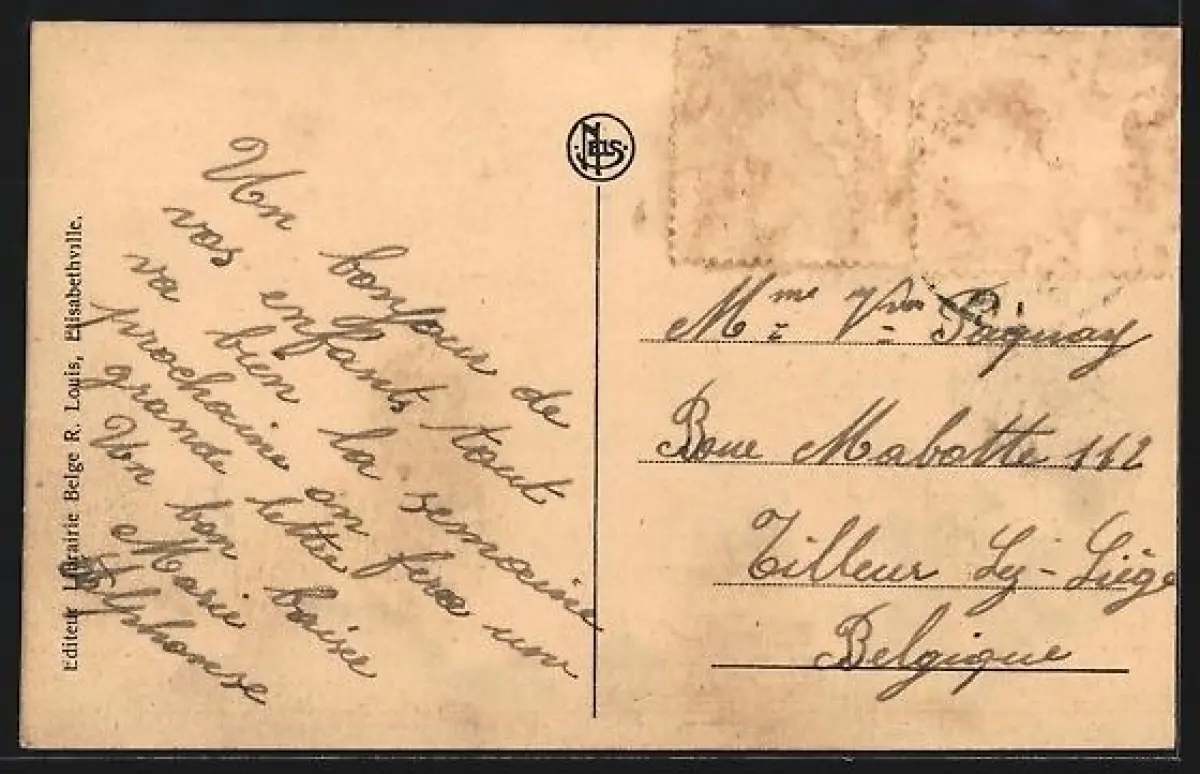 Editeur Librairie Belge R. Louis, Elisabethville.
NELS
Un bonjour de
vos enfants tout
va bien la semaine
prochaine on fera une
grande lettre
Un bon baisée
Marie
Alphonse
Mme Paquay
Boue Mabotte 112
Tilleur Lz-Liége
Belgique